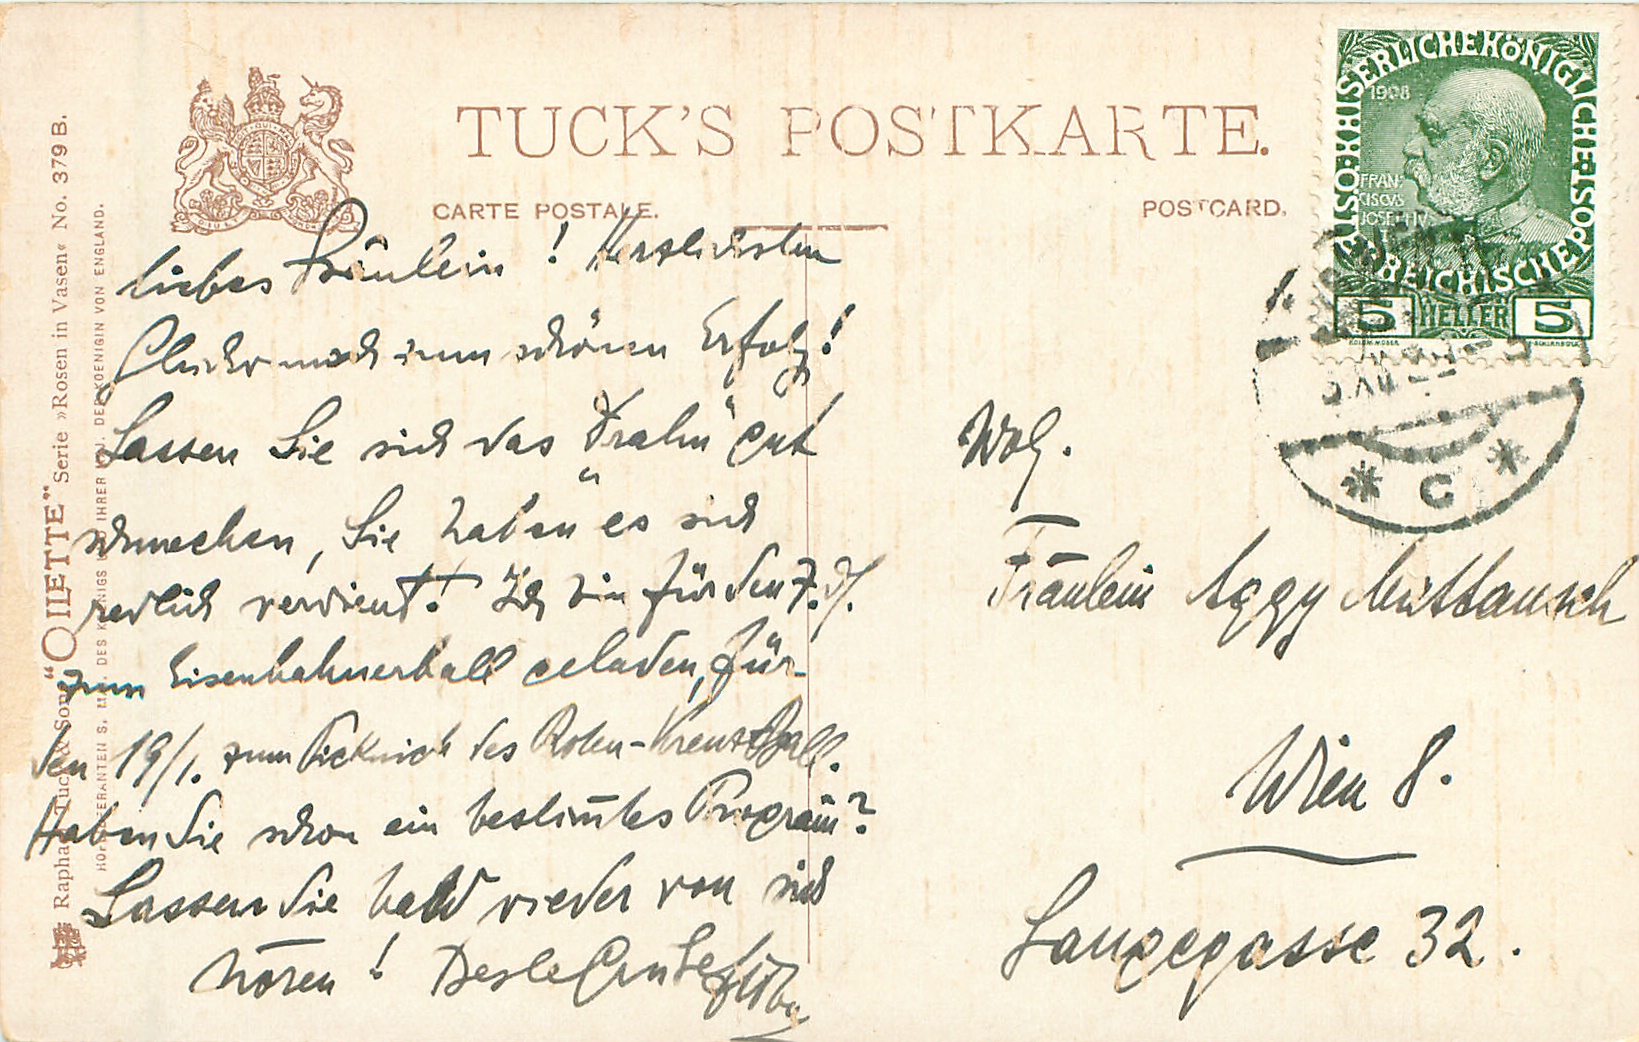 TUCK'S POSTKARTE.
CARTE POSTALE.
POSTCARD.
Raphael Tuck & Sons "OILETTE" Serie »Rosen in Vasen« No. 379 B.
HOFLIEFERANTEN S. M. DES KÖNIGS U. IHRER M. D. DER KOENIGIN VON ENGLAND.
KAISERLICHEKÖNIGLICHE POST
ÖSTERREICHISCHE
1908
FRAN-
CISCVS
JOSEPHVS
5 HELLER 5
C
Liebes Fräulein! Herzlichsten
Glückwunsch zum schönen Erfolg!
Lassen Sie sich das "Drahn" gut
schmecken, Sie haben es sich
redlich verdient! Ich bin für den 7. d/.
zum Eisenbahnerball geladen, für
den 19/1. zum Picknick des Roten-Kreuz Ball.
Haben Sie schon ein bestim̄tes Program̄?
Lassen Sie bald wieder von sich
hören! Beste Grüße
Wolg.
Fräulein Aggy
Wien 8.
Langegasse 32.